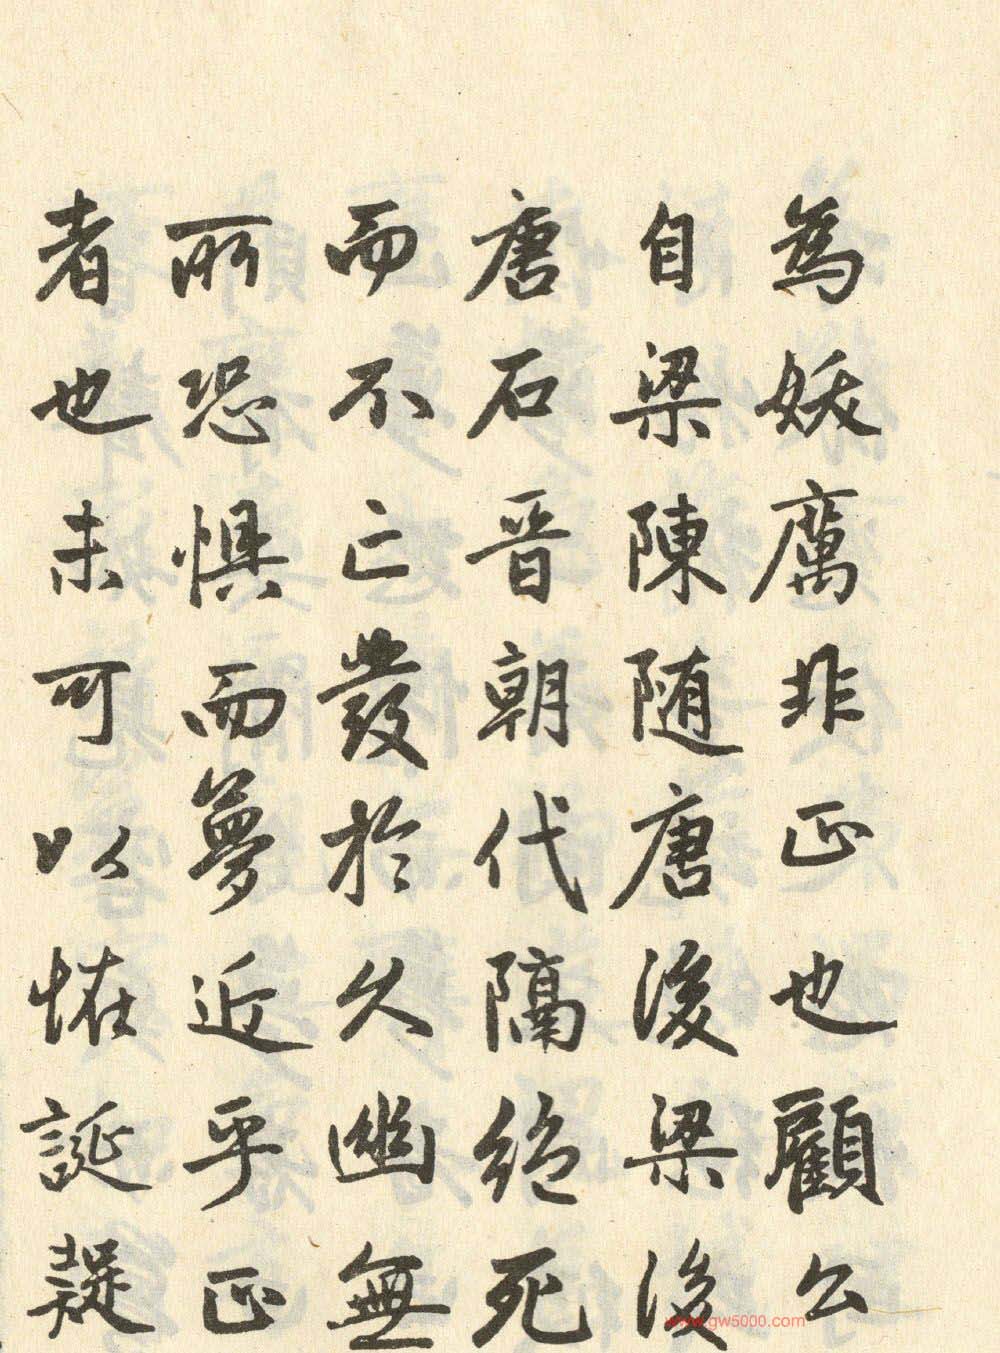 為妖厲非正也顧公
自梁陳随唐後梁後
唐石晋朝代隔絶死
而不亡發於久幽無
所恐惧而夢近乎正
者也未可以恠誕疑
www.gw5000.com